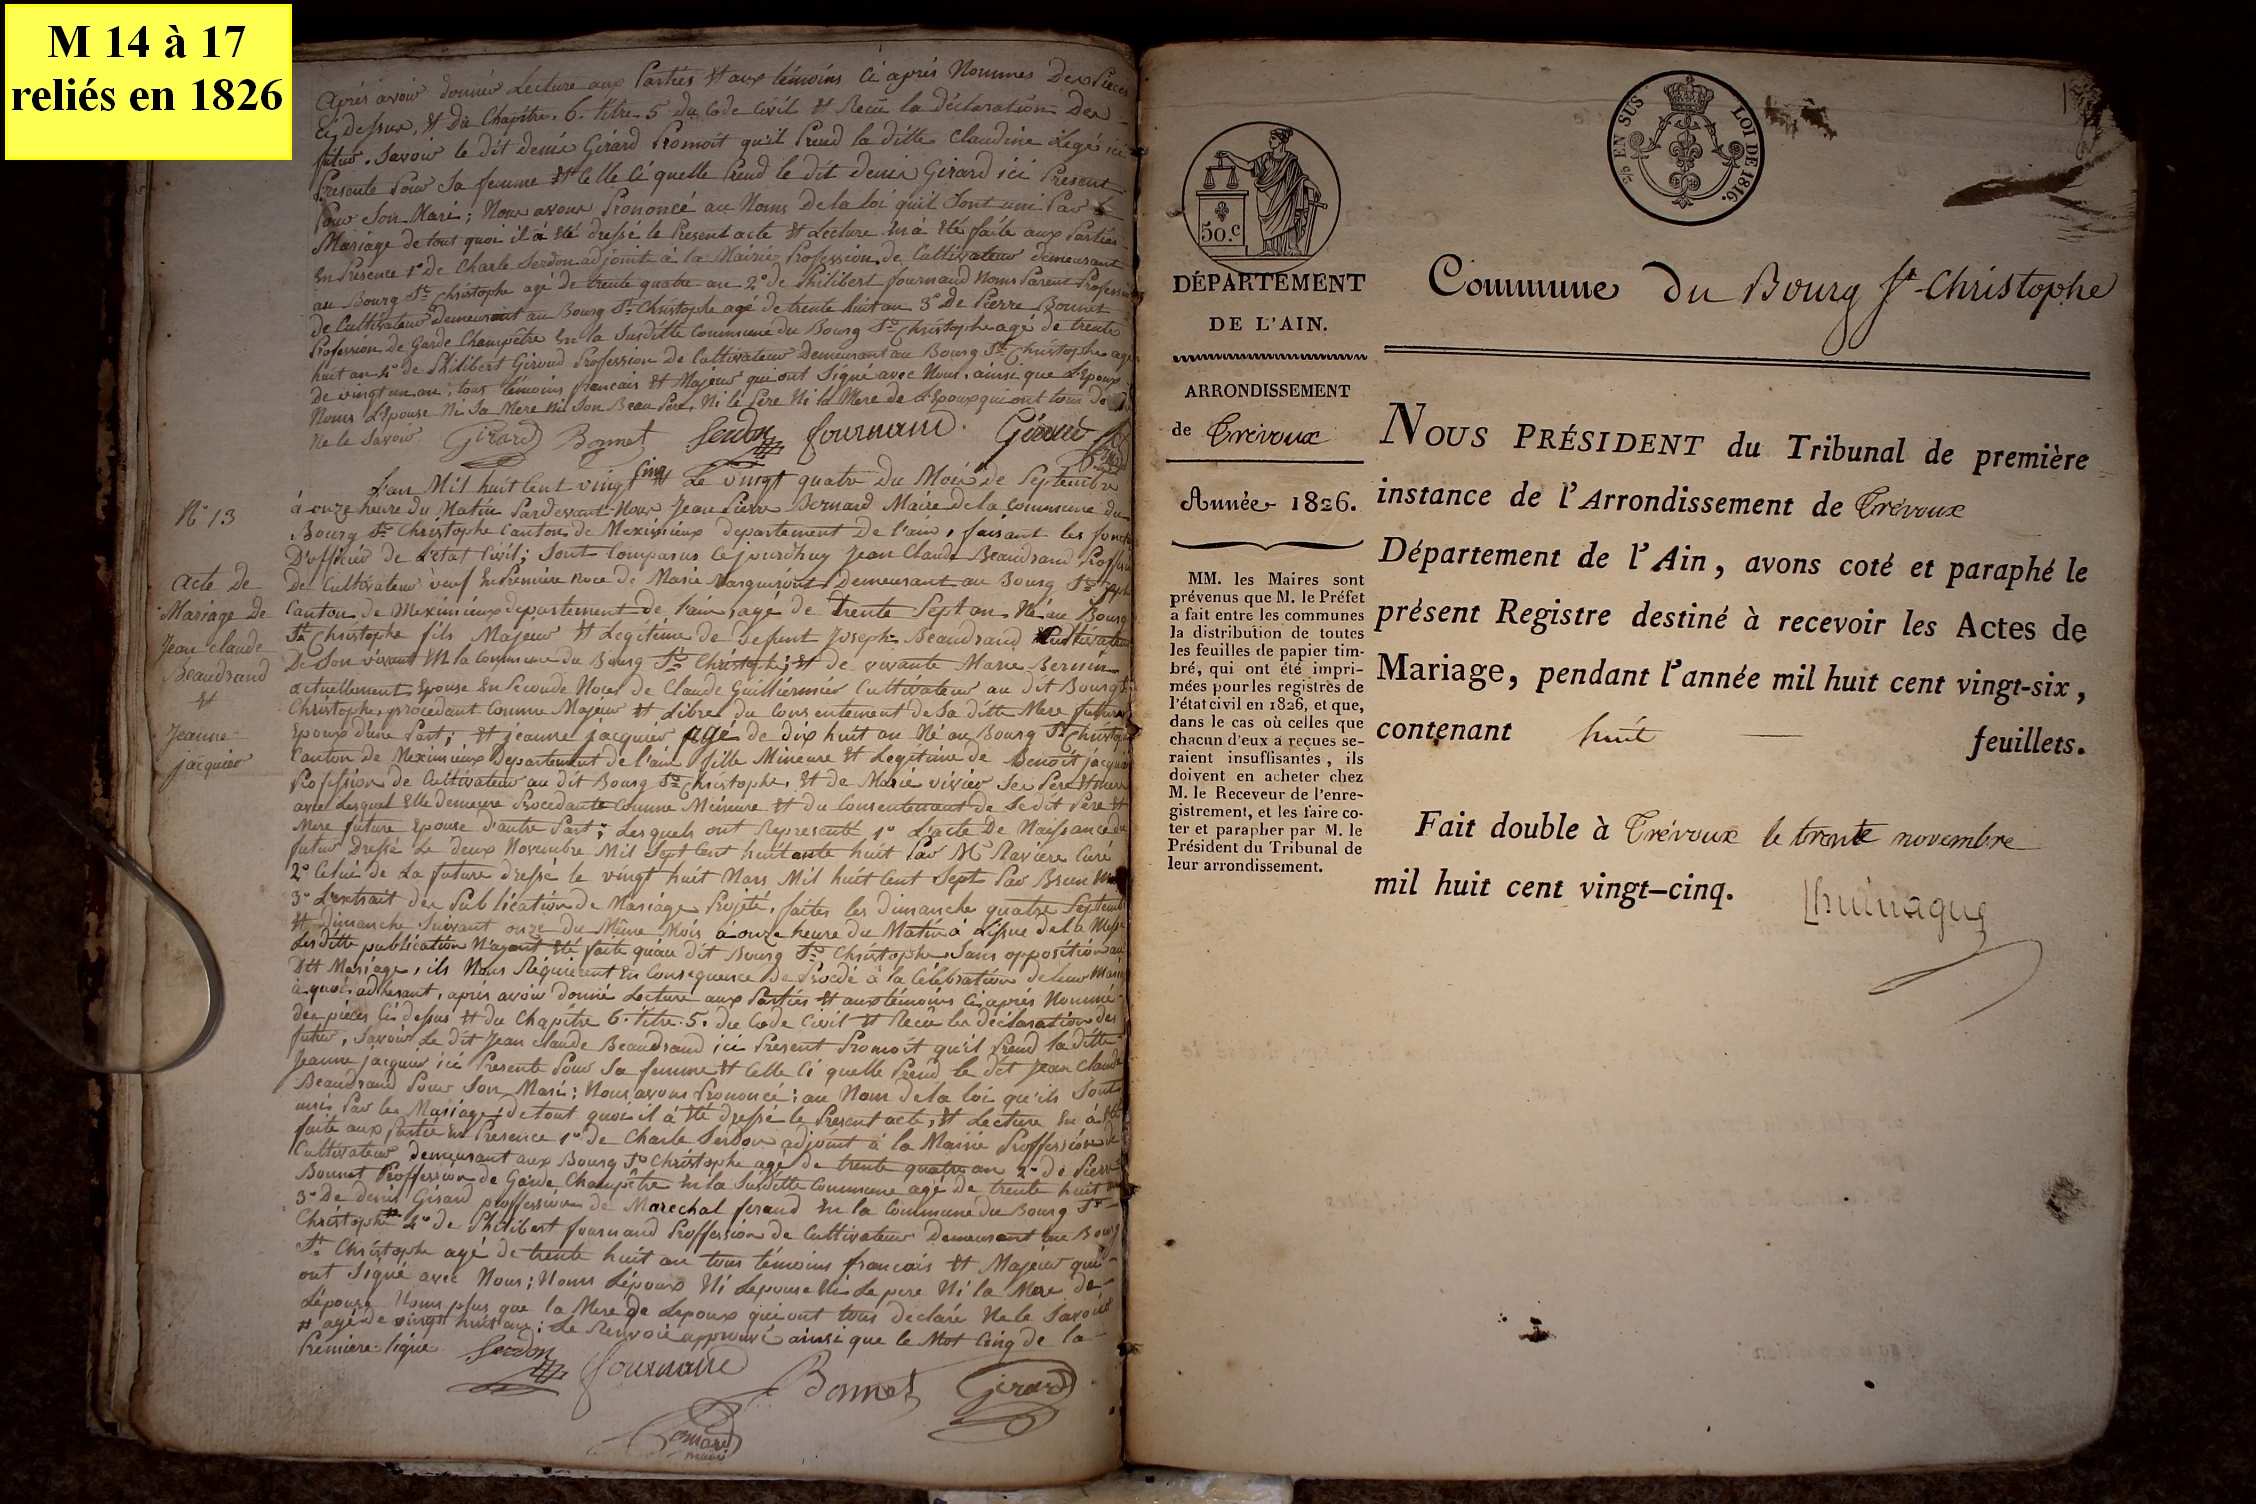 M 14 à 17
reliés en 1826
après avoir donnée Lecture aux Parties et aux témoins Ci après Nommés Des Pièces
Ci dessus, et du Chapitre 6. titre 5 du Code Civil et Reçu la déclaration Des
futur. Savoir le dit denis Girard Promoit qu'il Prend la ditte Claudine ici
Presente Pour Sa femme et Celle Ci quelle Prend le dit denis Girard ici Present
Pour Son Mari; Nous avons Prononcé au Noms De la loi quil Sont uni Par le
Mariage de tout quoi il a été dressé le Present acte et Lecture en a été faite aux Parties
En Présence 1° de Charle Serdon adjoint à la Mairie Profession de Cultivateur demeurant
au Bourg St Christophe agé de trente quatre an 2° de Philibert fournand Noms Parent Profession
de Cultivateur demeurant au Bourg St Christophe agé de trente huit an 3° De Pierre Bonnet
Profession de Garde Champêtre En la Susditte Commune du Bourg St Christophe agé de trente
huit an 4° de Philibert Giroud Profession de Cultivateur Demeurant au Bourg St Christophe agé
De vingt un an, tous témoins francais et Majeur qui ont Signé avec Nous, ainsi que L'Epoux
Noms L'Epouse Ni Sa Mere Ni Son Beau Pere, Ni le Pere Ni la Mere de L'Epoux qui ont tous de
Ne le Savoir. Girard Bonnet Serdon fournand Giroud
N° 13
acte de
Mariage De
Jean Claude
Beaudrand
et
Jeanne
jacquier
L'an Mil huit Cent vingt Cinq Le vingt quatre du Mois de Septembre
à onze heure du Matin Pardevant Nous Jean Pierre Bernard Maire de la Commune du
Bourg St Christophe Canton de Meximieux departement de l'ain, faisant les fonct
D'officier de L'état Civil; Sont Comparus Cejourdhuy Jean Claude Beaudrand Proffession
De Cultivateur veuf En Premiere Noce de Marie Demeurant au Bourg St Christophe
Canton de Meximieux departement de l'ain, agé de trente Sept an Né au Bourg
St Christophe fils Majeur et Legitime de defunt Joseph Beaudrand Cultivateur
De Son vivant En la Commune du Bourg St Christophe; et de vivante Marie
actuellement Epouse En Seconde Noces de Claude Guilliermier Cultivateur au dit Bourg St
Christophe, procedant Comme Majeur et Libre du Consentement de Sa ditte Mere futur
Epoux d'une Part; et jeanne jacquier age de dix huit an Né au Bourg St Christophe
Canton de Meximieux Departement de l'ain fille Mineure et Legitime de Benoît jacquier
Profession de Cultivateur au dit Bourg St Christophe, et de Marie vivier Ses Pere et Mere
avec Lesquel Elle Demeure Procedante Comme Mineure et du Consentement de Sedit Père et
Mere future Epouse d'autre Part; Lesquels ont Representé 1° L'acte De Naissance du
futur Dressé Le deux Novembre Mil Sept Cent huitante huit Par Mr Raviere Curé
2° Celui de La future dressé le vingt huit Mars Mil huit Cent Sept Par Brun
3° L'extrait des Publication de Mariage Projeté, faites les dimanche quatre Septembre
et dimanche Suivant onze du Même Mois à onze heure du Matin à L'issue de la Messe
Lesditte publication N'ayant été faite qu'au dit Bourg St Christophe Sans opposition au
Dit Mariage, ils Nous Requierent En Consequence de Procedé à la Célébration de leur Mariage
à quoi adherant, après avoir donné Lecture aux Parties et aux témoins Ci après Nommé
des pièces Ci dessus et du Chapitre 6. titre 5. du Code Civil et Reçu la déclaration des
futur, Savoir Le dit Jean Claude Beaudrand ici Present Promoit qu'il Prend la ditte
Jeanne jacquier ici Presente Pour Sa femme et Celle Ci quelle Prend le dit Jean Claude
Beaudrand Pour Son Mari: Nous avons Prononcé: au Nom De la loi qu'ils Sont
unis Par le Mariage; de tout quoi il a été dressé le Present acte, et Lecture En a été
faite aux Partie En Presence 1° de Charle Serdon adjoint à la Mairie Proffession de
Cultivateur demeurant aux Bourg St Christophe agé de trente quatre an 2° de Pierre
Bonnet Proffession de Garde Champêtre En la Susditte Commune agé de trente huit an
3° De denis Girard proffession de Marechal ferand En la Commune du Bourg St
Christophe # 4° de Philibert fournand Proffession de Cultivateur Demeurant au Bourg
St Christophe agé de trente huit an tous témoins francois et Majeur qui
ont Signé avec Nous; Noms L'époux Ni Lepouse Ni Le pere Ni la Mere de
L'épouse Noms plus que la Mere de Lepoux qui ont tous declaré Ne le Savoir
# agé de vingt huit an; Le Renvoie approuvé ainsi que le Mot Cinq de la
Premiere ligne Serdon fournand Bonnet Girard
Bernard
maire
EN SUS
LOI DE 1816.
50.c
DÉPARTEMENT
DE L'AIN.
ARRONDISSEMENT
de Trévoux
Année 1826.
MM. les Maires sont
prévenus que M. le Préfet
a fait entre les communes
la distribution de toutes
les feuilles de papier tim-
bré, qui ont été impri-
mées pour les registres de
l'état civil en 1826, et que,
dans le cas où celles que
chacun d'eux a reçues se-
raient insuffisantes, ils
doivent en acheter chez
M. le Receveur de l'enre-
gistrement, et les faire co-
ter et parapher par M. le
Président du Tribunal de
leur arrondissement.
Commune du Bourg St Christophe
NOUS PRÉSIDENT du Tribunal de première
instance de l'Arrondissement de Trévoux
Département de l'Ain, avons coté et paraphé le
présent Registre destiné à recevoir les Actes de
Mariage, pendant l'année mil huit cent vingt-six,
contenant huit feuillets.
Fait double à Trévoux le trente novembre
mil huit cent vingt-cinq.